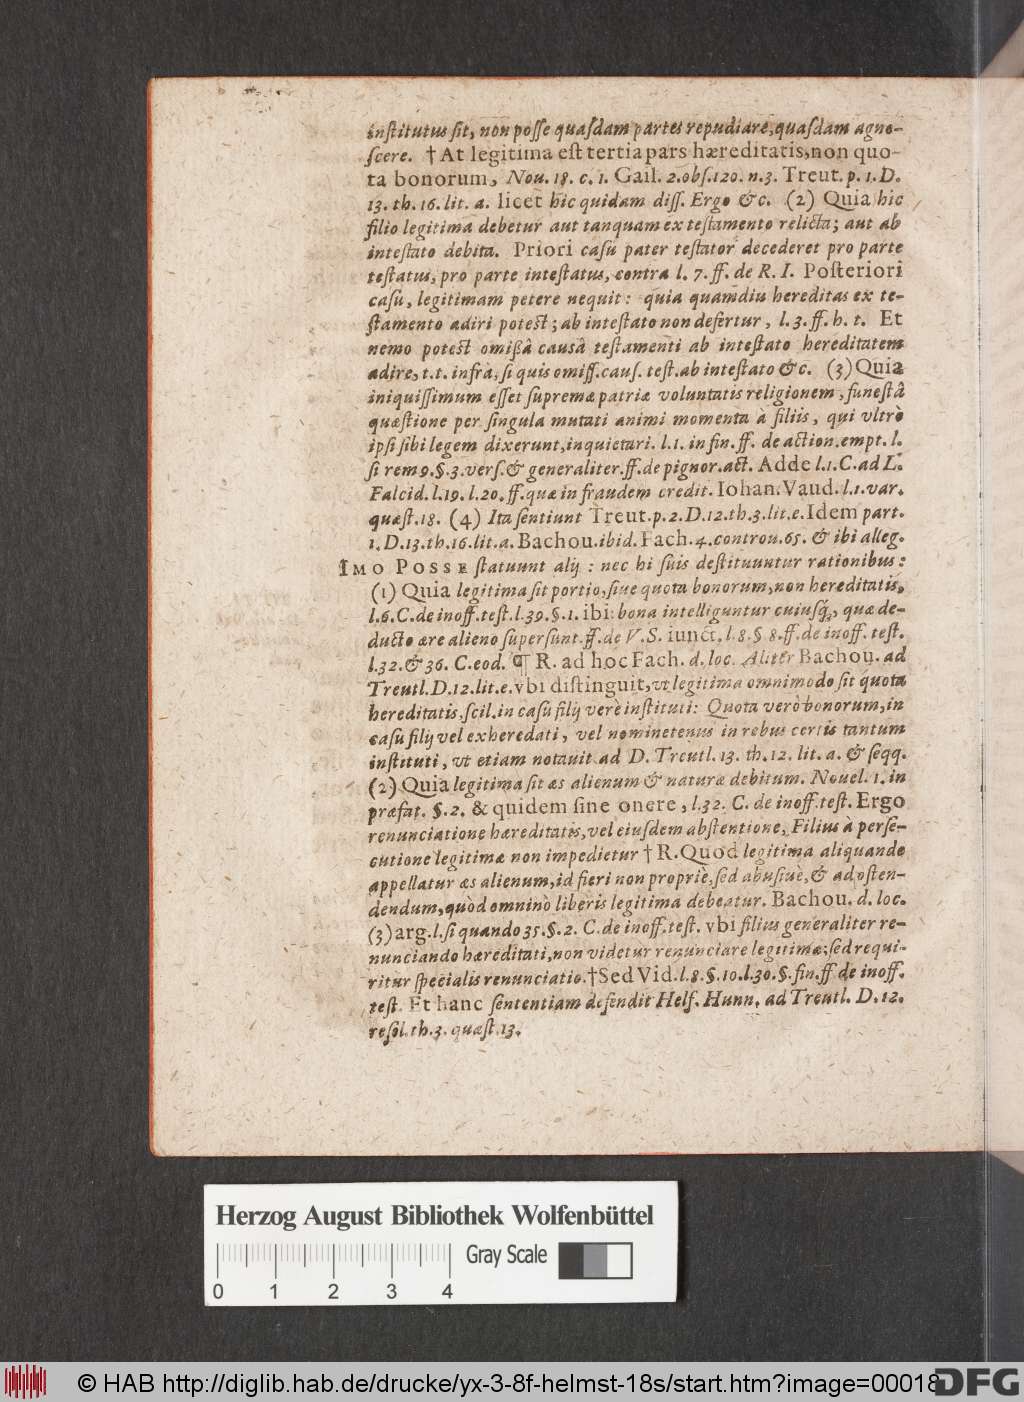 institutus sit, non posse quasdam partes repudiare, quasdam agno-
scere. † At legitima est tertia pars hæreditatis, non quo-
ta bonorum, Nov. 18. c. 1. Gail. 2. obs. 120. n. 3. Treut. p. 1. D.
13. th. 16. lit. a. licet hic quidam diss. Ergo &c. (2) Quia hic
filio legitima debetur aut tanquam ex testamento relicta; aut ab
intestato debita. Priori casu pater testator decederet pro parte
testatus, pro parte intestatus, contra l. 7. ff. de R. I. Posteriori
casu, legitimam petere nequit: quia quamdiu hereditas ex te-
stamento adiri potest; ab intestato non defertur, l. 3. ff. h. t. Et
nemo potest omißâ causâ testamenti ab intestato hereditatem
adire, t.t. infrà, si quis omiss. caus. test. ab intestato &c. (3) Quia
iniquissimum esset supremæ patriæ voluntatis religionem, funestâ
quæstione per singula mutati animi momenta à filiis, qui vltrò
ipsi sibi legem dixerunt, inquietari. l. 1. in fin. ff. de action. empt. l.
si rem 9. §. 3. vers. & generaliter. ff. de pignor. act. Adde l. 1. C. ad L.
Falcid. l. 19. l. 20. ff. quæ in fraudem credit. Iohan. Vaud. l. 1. var.
quæst. 18. (4) Ita sentiunt Treut. p. 2. D. 12. th. 3. lit. e. Idem part.
1. D. 13. th. 16. lit. a. Bachou. ibid. Fach. 4. controu. 65. & ibi alleg.
IMO POSSE statuunt alij: nec hi suis destituuntur rationibus:
(1) Quia legitima sit portio, siue quota bonorum, non hereditatis,
l. 6. C. de inoff. test. l. 39. §. 1. ibi: bona intelliguntur cuiusq́;, quæ de-
ducto ære alieno supersunt. ff. de V. S. iunct. l. 8. § 8. ff. de inoff. test.
l. 32. & 36. C. eod. ¶ R. ad hoc Fach. d. loc. Aliter Bachou. ad
Treutl. D. 12. lit. e. vbi distinguit, vt legitima omnimodo sit quota
hereditatis, scil. in casu filij verè instituti: Quota verò bonorum, in
casu filij vel exheredati, vel nominetenus in rebus certis tantum
instituti, vt etiam notauit ad D. Treutl. 13. th. 12. lit. a. & seqq.
(2) Quia legitima sit æs alienum & naturæ debitum. Nouel. 1. in
præfat. §. 2. & quidem sine onere, l. 32. C. de inoff. test. Ergo
renunciatione hæreditatis, vel eiusdem abstentione, Filius à perse-
cutione legitimæ non impedietur † R. Quod legitima aliquando
appellatur æs alienum, id fieri non propriè, sed abusiuè, & ad osten-
dendum, quòd omninò liberis legitima debeatur. Bachou. d. loc.
(3) arg. l. si quando 35. §. 2. C. de inoff. test. vbi filius generaliter re-
nunciando hæreditati, non videtur renunciare legitimæ; sed requi-
ritur specialis renunciatio. † Sed Vid. l. 8. §. 10. l. 30. §. fin. ff. de inoff.
test. Et hanc sententiam defendit Helf. Hunn. ad Treutl. D. 12.
resol. th. 3. quæst. 13.
Herzog August Bibliothek Wolfenbüttel
Gray Scale
0 1 2 3 4
© HAB http://diglib.hab.de/drucke/yx-3-8f-helmst-18s/start.htm?image=00018
DFG